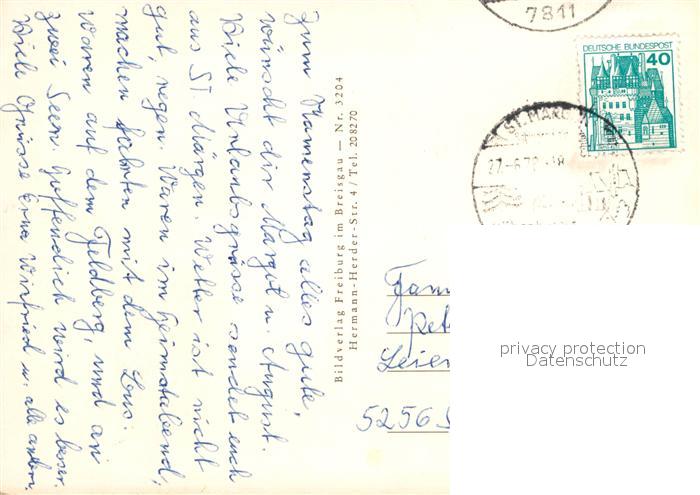 7811
DEUTSCHE BUNDESPOST
40
ST. MÄRG
27.-6.79.-18
Zum Namenstag alles gute,
wünscht dir Margot u. August.
Viele Urlaubsgrüsse sendet euch
aus St. Märgen. Wetter ist nicht
gut, regen. Waren im Heimatabend,
machen fahrten mit dem Bus.
Waren auf dem Feldberg, und an
zwei Seen. Hoffendlich wird es besser.
Viele Grüsse Erna Winfried u. alle andern.
Bildverlag Freiburg im Breisgau — Nr. 3204
Hermann-Herder-Str. 4 / Tel. 208270
Fam
Pet
Leien
5256
privacy protection
Datenschutz